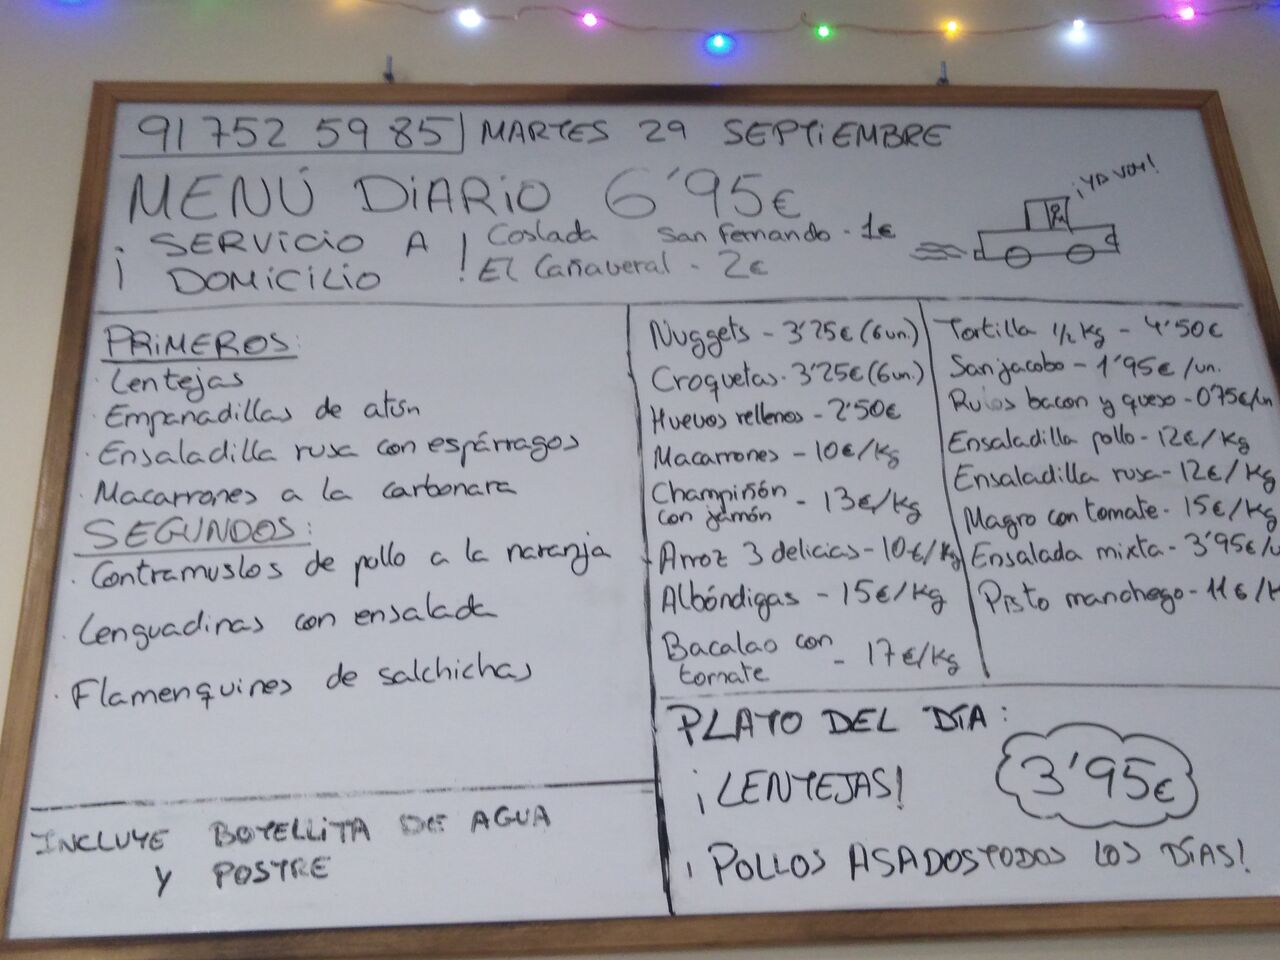 91 752 59 85 MARTES 29 SEPTIEMBRE
MENÚ DIARIO 6'95€
¡YA VOY!
¡ SERVICIO A
DOMICILIO !
Coslada San Fernando - 1€
El Cañaveral - 2€
PRIMEROS:
· Lentejas
· Empanadillas de atún
· Ensaladilla rusa con espárragos
· Macarrones a la carbonara
SEGUNDOS:
· Contramuslos de pollo a la naranja
· Lenguadinas con ensalada
· Flamenquines de salchichas
INCLUYE BOTELLITA DE AGUA
Y POSTRE
Nuggets - 3'25€ (6un.)
Croquetas - 3'25€ (6un.)
Huevos rellenos - 2'50€
Macarrones - 10€/Kg
Champiñón
con jamón - 13€/Kg
Arroz 3 delicias - 10€/Kg
Albóndigas - 15€/Kg
Bacalao con
tomate - 17€/Kg
Tortilla 1/2 Kg - 4'50€
Sanjacobo - 1'95€/un.
Rulos bacon y queso - 0'75€/un
Ensaladilla pollo - 12€/Kg
Ensaladilla rusa - 12€/Kg
Magro con tomate - 15€/Kg
Ensalada mixta - 3'95€/u
Pisto manchego - 11€/K
PLATO DEL DÍA:
¡LENTEJAS! 3'95€
¡POLLOS ASADOS TODOS LOS DÍAS!